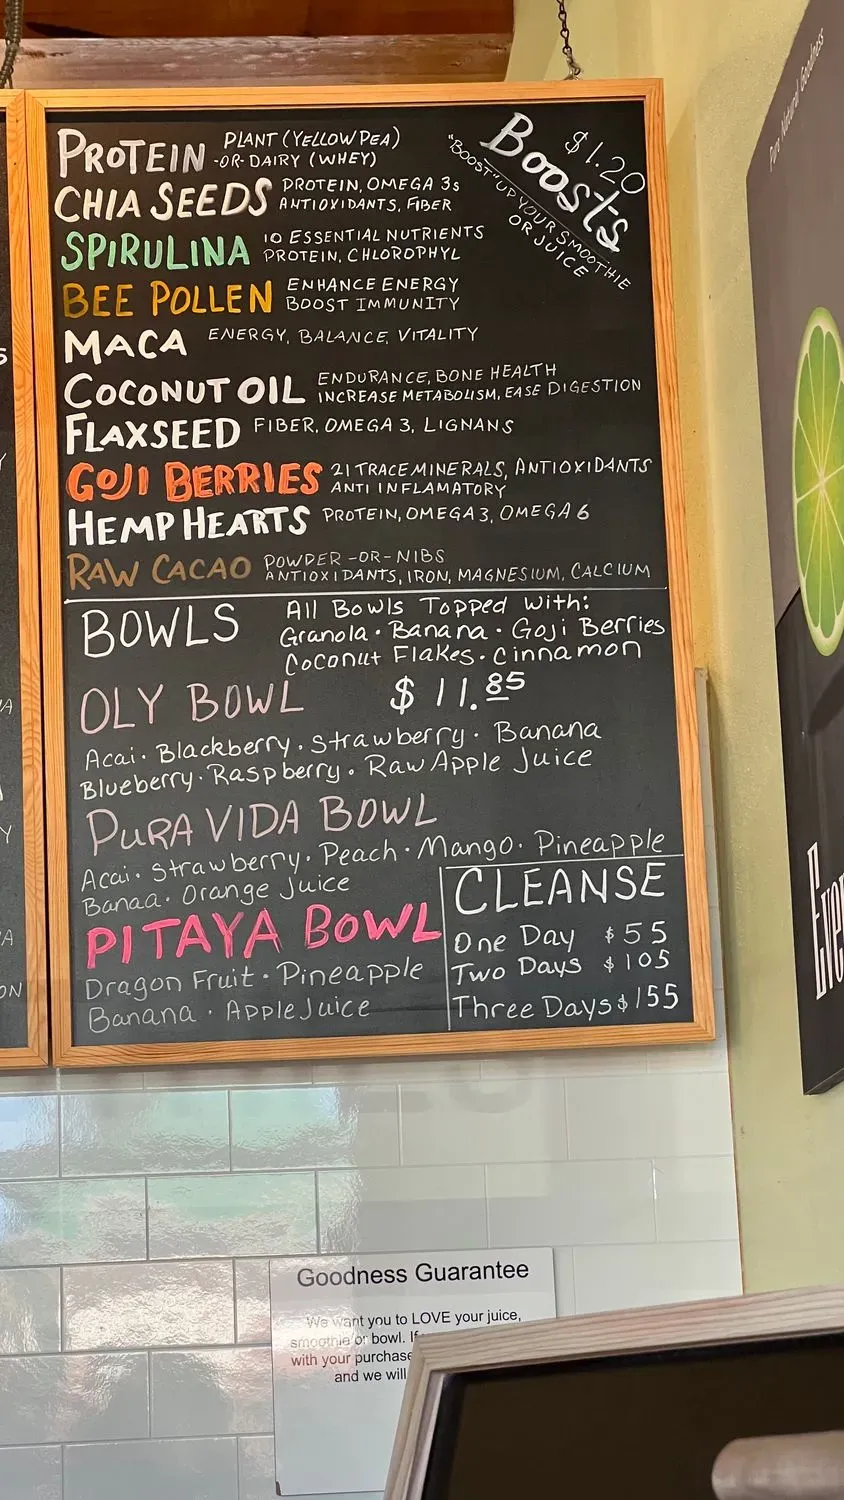 PROTEIN PLANT (YELLOW PEA)
-OR- DAIRY (WHEY)
CHIA SEEDS PROTEIN, OMEGA 3s
ANTIOXIDANTS, FIBER
SPIRULINA 10 ESSENTIAL NUTRIENTS
PROTEIN, CHLOROPHYL
BEE POLLEN ENHANCE ENERGY
BOOST IMMUNITY
MACA ENERGY, BALANCE, VITALITY
COCONUT OIL ENDURANCE, BONE HEALTH
INCREASE METABOLISM, EASE DIGESTION
FLAXSEED FIBER, OMEGA 3, LIGNANS
GOJI BERRIES 21 TRACE MINERALS, ANTIOXIDANTS
ANTI INFLAMATORY
HEMP HEARTS PROTEIN, OMEGA 3, OMEGA 6
RAW CACAO POWDER -OR- NIBS
ANTIOXIDANTS, IRON, MAGNESIUM, CALCIUM
$1.20
Boosts
"BOOST" UP YOUR SMOOTHIE
OR JUICE
BOWLS All Bowls Topped with:
Granola · Banana · Goji Berries
Coconut Flakes · Cinnamon
OLY BOWL $11.85
Acai · Blackberry · Strawberry · Banana
Blueberry · Raspberry · Raw Apple Juice
PURA VIDA BOWL
Acai · Strawberry · Peach · Mango · Pineapple
Banaa · Orange Juice
PITAYA BOWL
Dragon Fruit · Pineapple
Banana · Apple Juice
CLEANSE
One Day $55
Two Days $105
Three Days $155
Pure Natural Goodness
Goodness Guarantee
We want you to LOVE your juice,
smoothie or bowl. If
with your purchase
and we will